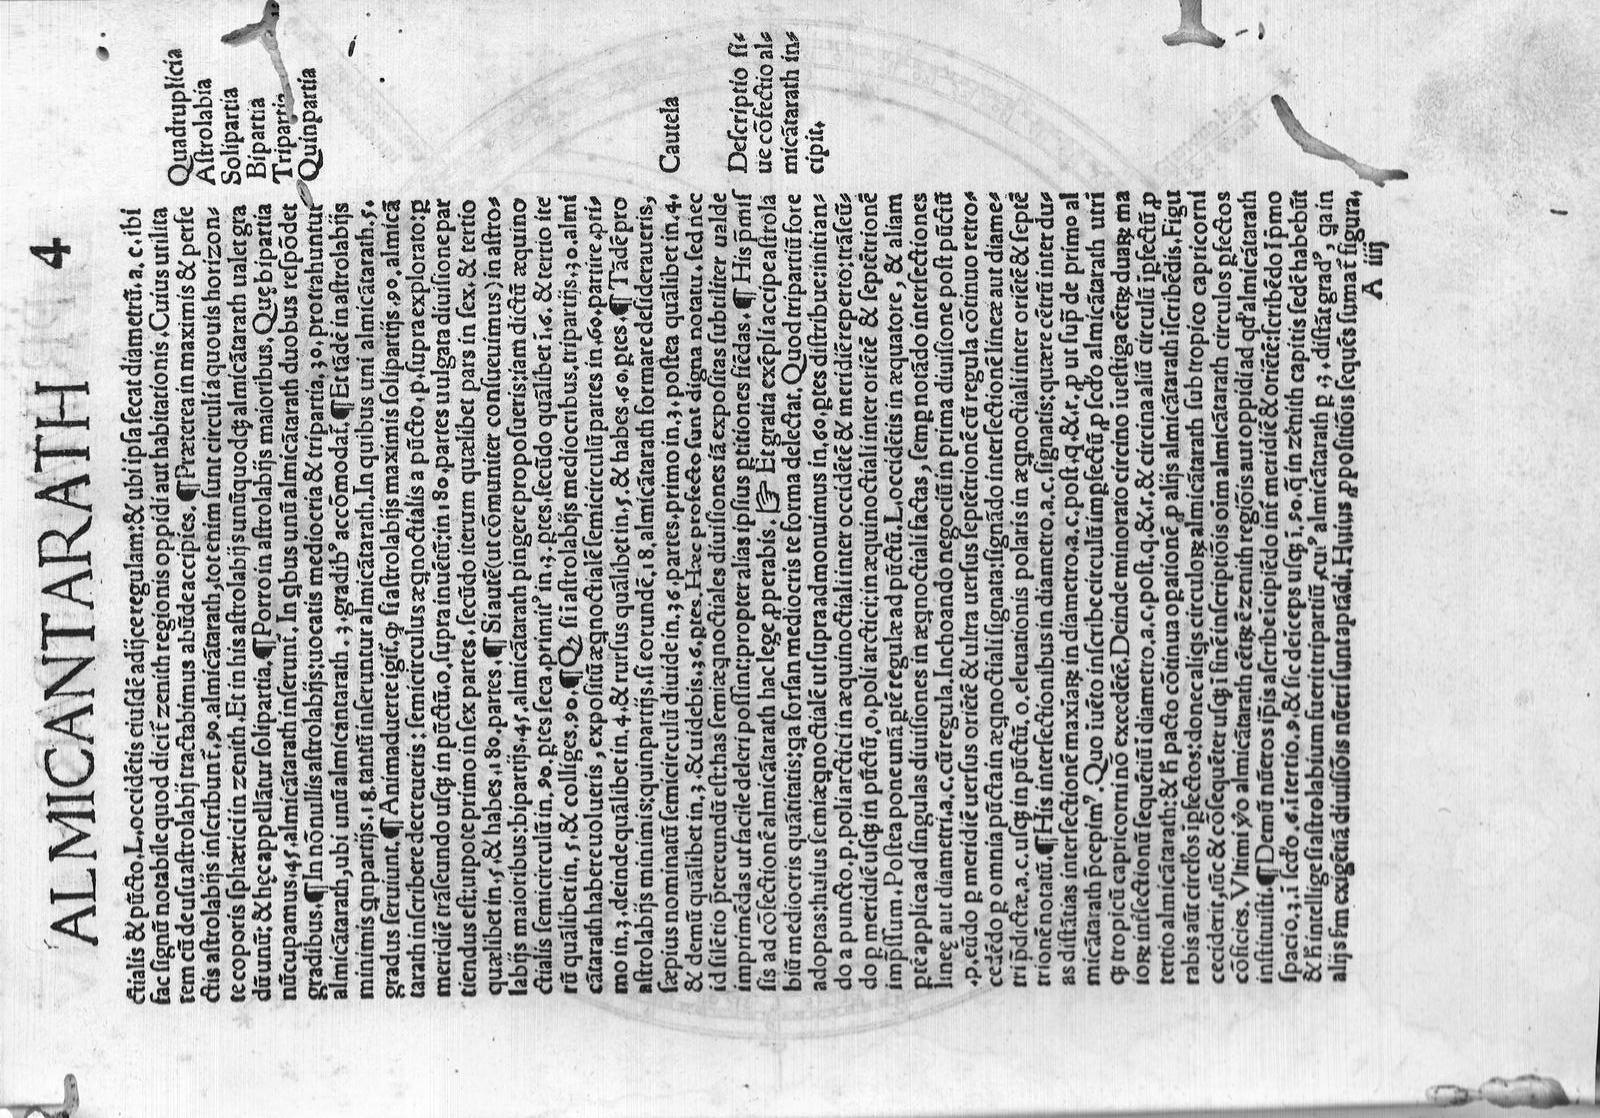 ALMICANTARATH 4
ctialis & pũcto.L.occidẽtis eiusdẽ adijce regulam:& ubi ipsa secat diametrũ.a.c.ibi
fac signũ notabile quod dicit̃ zenith regionis oppidi aut habitationis. Cuius utilita
tem cũ de usu astrolabij tractabimus abũde accipies. ¶ Præterea in maximis & perfe
ctis astrolabijs inscribunt̃.90.almicãtarath,tot enim sunt circuli a quouis horizon⸗
te coporis sphærici in zenith.Et in his astrolabijs unũquodq; almicãtarath ualer gra
dũ unũ: & hęc appellãtur solipartia.¶ Porro in astrolabijs maioribus, Quę bipartia
nũcupamus:45.almicãtarath inserunt̃. In qbus unũ almicãtarath duobus respõdet
gradibus.¶ In nõnullis astrolabijs:uocatis mediocria & tripartia,30,protrahuntur
almicãtarath,ubi unũ almicantarath.3.gradibꝰ accõmodat̃.¶ Et tãdẽ in astrolabijs
minimis qnpartijs.18.tantũ inseruntur almicãtarath.In quibus uni almicãtarath.5.
gradus seruiunt.¶ Animaduerte igit̃,q si astrolabijs maximis solipartijs.90.almicã
tarath inscribere decreueris: semicirculus æqnoctialis a pũcto.p.supra explorato:p
meridiẽ trãseundo usq; in pũctũ.o.supra inuẽtũ:in 180.partes uulgata diuisione par
tiendus est:utpote primo in sex partes.secũdo iterum quælibet pars in sex.& tertio
quælibet in.5.& habes.180.partes.¶ Si autẽ(ut cõmuniter consueuimus)in astro⸗
labijs maioribus:bipartijs.45.almicãtarath pingere proposueris:iam dictũ æquino
ctialis semicirculũ in.90.ptes seca.primit̃ in.3.ptes.secũdo quãlibet i.6.& tertio ite
rũ quãlibet in.5.& colliges.90.¶ Qꝫ si i astrolabijs mediocribus.tripartijs.30.almi
cãtarath habere uolueris, expositũ æqnoctialẽ semicirculũ partes in.60.partire.pri⸗
mo in.3.deinde quãlibet in.4.& rursus quãlibet in.5.& habes.60.ptes.¶ Tãdẽ pro
astrolabijs minimis:quinpartijs.si eorundẽ.18.almicãtarath formare desideraueris,
sæpius nominatũ semicirculũ diuide in.36.partes.primo in.3.postea quãlibet in.4.
& demũ quãlibet in.3.& uidebis.36.ptes. Hæc profecto sunt digna notatu. sed nec
id silẽtio ptereundũ est:has semiæqnoctiales diuisiones iã expositas subtiliter ualde
imprimẽdas ut facile deleri possint:propter alias ipsius ptitiones fiẽdas.¶ His pmis
sis ad cõfectionẽ almicãtarath hac lege pperabis. ☞ Et gratia exẽpli accipe astrola
biũ mediocris quãtitatis:qa forsan mediocris te forma delectat. Quod tripartiũ fore
adoptas:huius semiæqnoctialẽ ut supra admonuimus in.60.ptes distribue:initian⸗
do a puncto.p.poli arctici in æquinoctiali inter occidẽtẽ & meridiẽ reperto:trãseũ⸗
do p meridiẽ usq; in pũctũ.o.poli arctici:in æquinoctiali inter oriẽtẽ & septẽtrionẽ
impssum.Postea pone unã ptẽ regulæ ad pũctũ.L.occidẽtis in æquatore, & aliam
ptẽ applica ad singulas diuisiones in æqnoctiali factas, semp notãdo intersectiones
lineę aut diametri.a.c.cũ regula.Inchoando negociũ in prima diuisione post pũctũ
.p.eũdo p meridiẽ uersus oriẽtẽ & ultra uersus septẽtrionẽ cũ regula cõtinuo retro⸗
cedẽdo p omnia pũcta in æqnoctiali signata:signãdo intersectionẽ lineæ aut diame⸗
tri pdictæ.a.c.usq; in pũctũ.o.eleuationis polaris in æqnoctiali inter oriẽtẽ & septẽ
trionẽ notatũ.¶ His intersectionibus in diametro.a.c.signatis:quære cẽtrũ inter du⸗
as distãtias intersectionẽ maxiaꝝ in diametro.a.c.post.q.&.r.p ut supͥ de primo al
micãtarath pcepimꝰ.Quo iuẽto inscribe circulũ impfectũ p scdo almicãtarath utri
q; tropicũ capricorni nõ excedẽtẽ.Deinde minorato circino iuestiga cẽtꝝ duaꝝ ma
ioꝝ intsectionũ sequẽtiũ i diametro.a.c.post.q.&.r.& circina aliũ circulũ ipfectũ p
tertio almicãtarath:& h pacto cõtinua opationẽ p alijs almicãtarath iscribẽdis.Figu
rabis aũt circlos ipfectos:donec aliqs circuloꝝ almicãtarath sub tropico capricorni
ceciderit,tũc & cõsequẽter usq; i finẽ inscriptiõis oim almicãtarath circulos pfectos
cõficies. Vltimi ỹo almicãtarath cẽtꝝ ẽ zenith regiõis aut oppidi ad qd almicãtarath
instituisti.¶ Demũ nũeros ipis ascribe icipiẽdo int̃ meridiẽ & oriẽtẽ:scribẽdo i pmo
spacio.3.i scdo.6.i tertio.9.& sic deiceps usq; i.90.q in zẽnith capitis sedẽ habebũt
& h intellige si astrolabium fuerit tripartiũ,cuiꝰ almicãtarath p.3.distãt gradꝰ, qa in
alijs fm exigẽtiã diuisiõis nũeri sunt aptãdi.Huius ppositiõis sequẽs sumat̃ figura.
A iiij
Quadruplicia
Astrolabia
Solipartia
Bipartia
Tripartia
Quinpartia
Cautela
Descriptio si⸗
ue cõfectio al⸗
micãtarath in⸗
cipit.